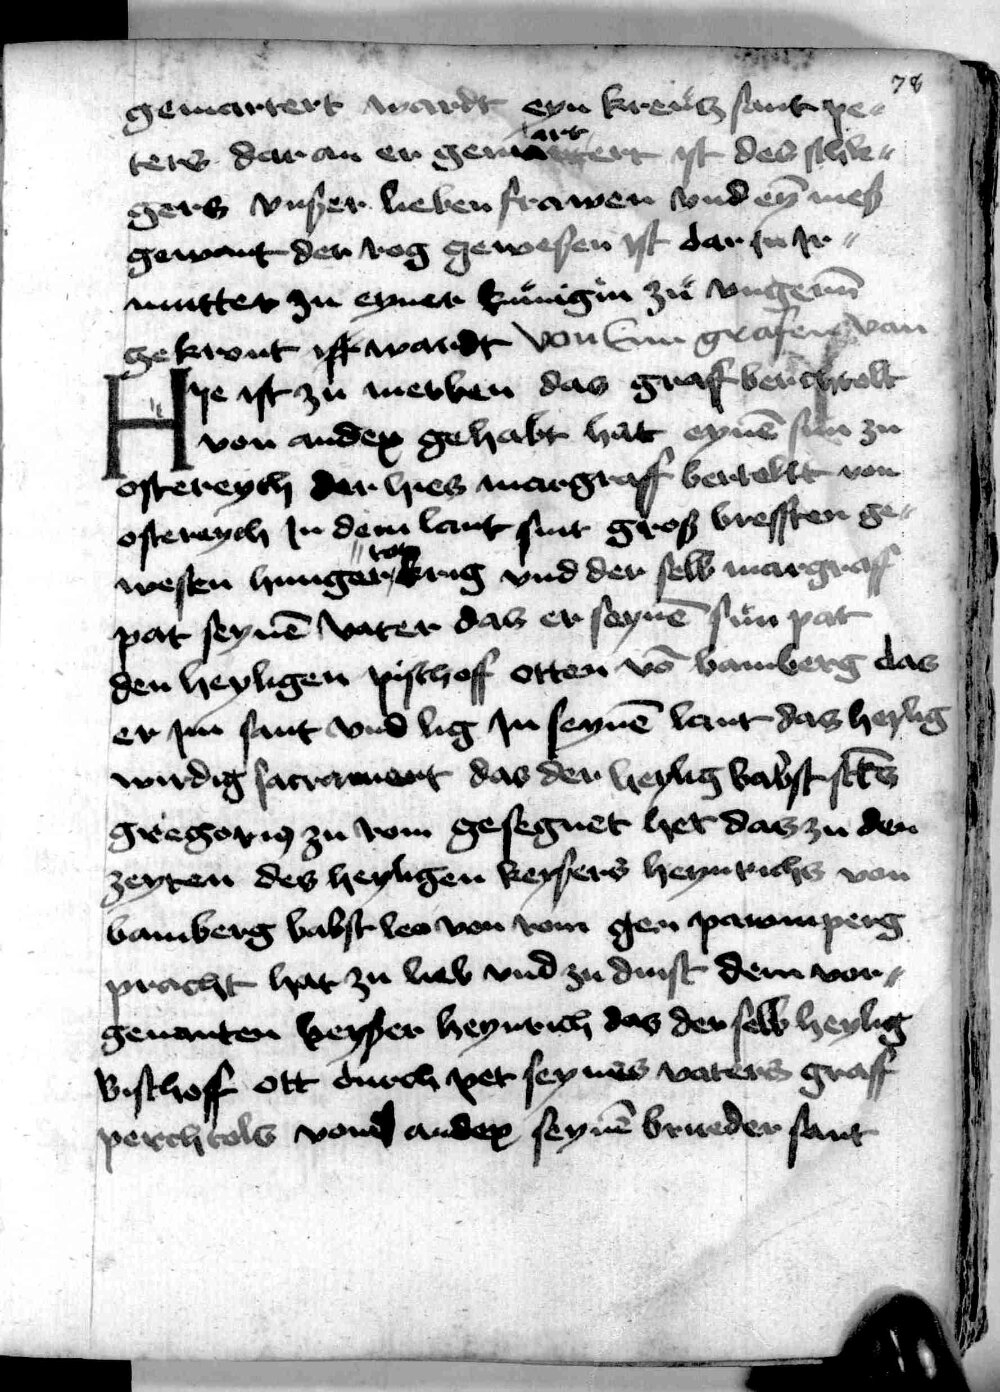 78
gemartert wardt eyn kreücz sant pe-
ters dar an er gemartert ist des schle-
gers vnßer lieben frawen vnd eȳ meß
gewant der rog geweßen ist dar jn jr
mutter zu eyner künigin zü vngerñ
gekrvnt wardt von grafen van
Hye ist zü merken das graff berchtolt
von andex gehabt hat eynē sün zu
ostereych der hies margraff bertoltt von
ostereych Jn dem lant sint groß bresten ge-
wesen hunger tot krig vnd der selb margraff
pat seynē vater das er seynē sün pat
den heyligen pischoff otten vō bamberg das
er jm sant vnd lig jn seynē lant das heylig
wirdig sacrament das der heylig babst
gregorius zu rom gesegnet het das zu den
zeyten des heyligen keysers heynrichs von
bamberg babst leo von rom gen pawmperg
pracht hat zu lieb vnd zu dinst dem vor-
genanten keyßer heynrich das der selb heylig
Bischoff ott durch pet seynes vaters graff
perchtols von andex seynē brueder sant